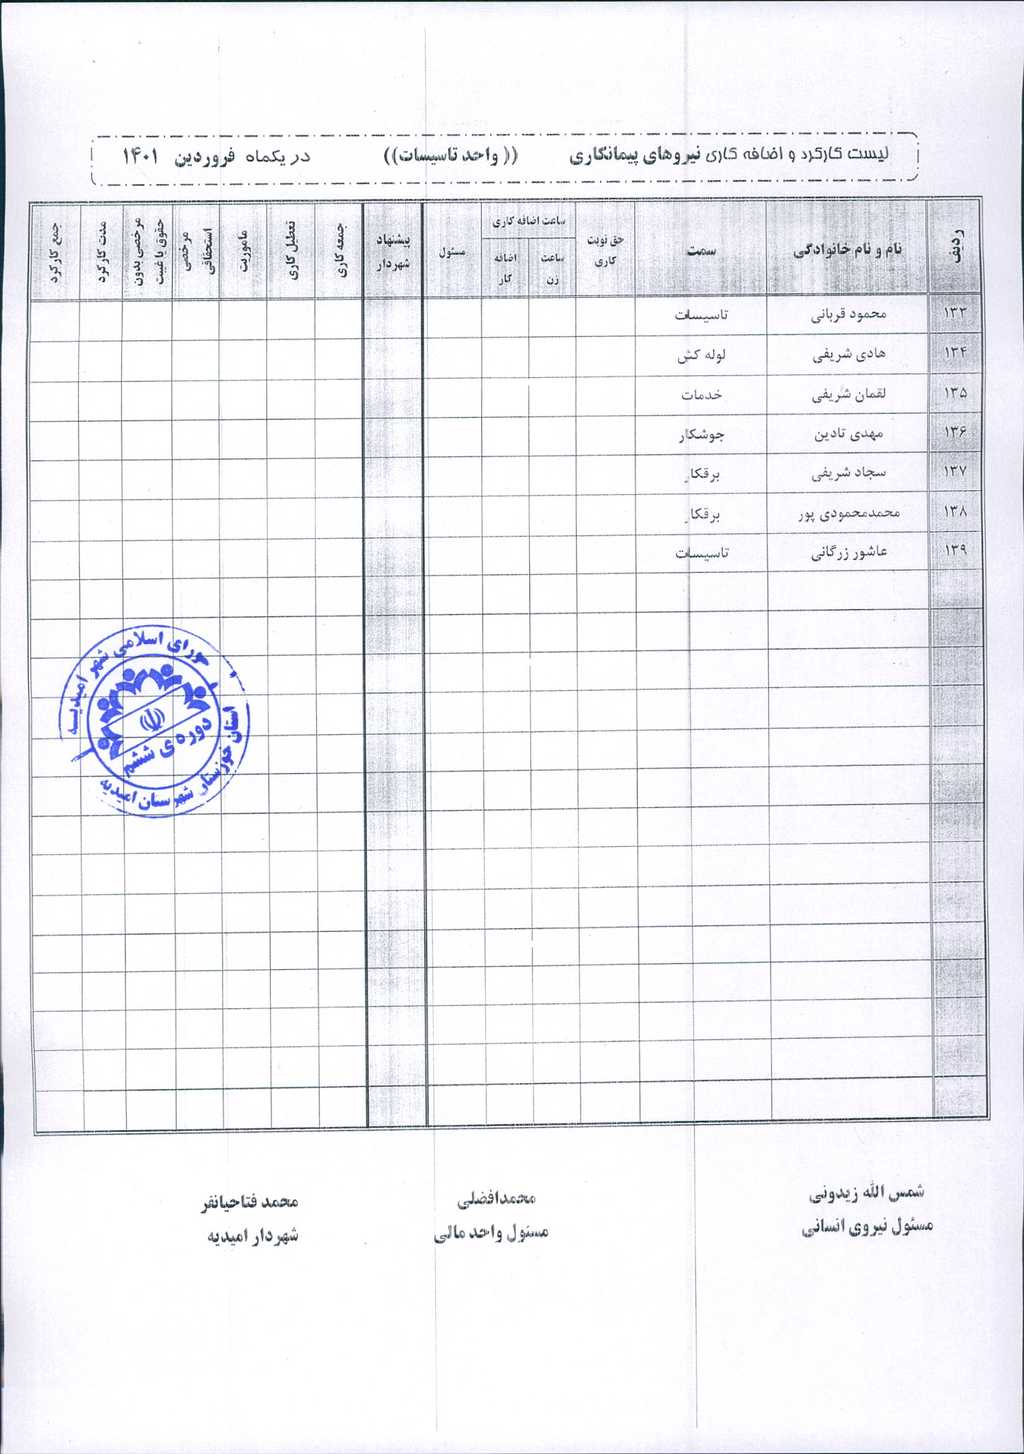 لیست کارکرد و اضافه کاری نیروهای پیمانکاری (( واحد تاسیسات)) در یکماه فروردین ۱۴۰۱
ردیف نام و نام خانوادگی سمت حق نوبت کاری ساعت اضافه کاری ساعت زن اضافه کار مسئول پیشنهاد شهردار جمعه کاری تعطیل کاری ماموریت مرخصی استحقاقی مرخصی بدون حقوق یا غیبت مدت کارکرد جمع کارکرد
۱۳۳ محمود قربانی تاسیسات
۱۳۴ هادی شریفی لوله کش
۱۳۵ لقمان شریفی خدمات
۱۳۶ مهدی تادین جوشکار
۱۳۷ سجاد شریفی برقکار
۱۳۸ محمدمحمودی پور برقکار
۱۳۹ عاشور زرگانی تاسیسات
شورای اسلامی شهر امیدیه
دوره ی ششم
استان خوزستان شهرستان امیدیه
شمس الله زیدونی محمدافضلی محمد فتاحیانفر
مسئول نیروی انسانی مسئول واحد مالی شهردار امیدیه